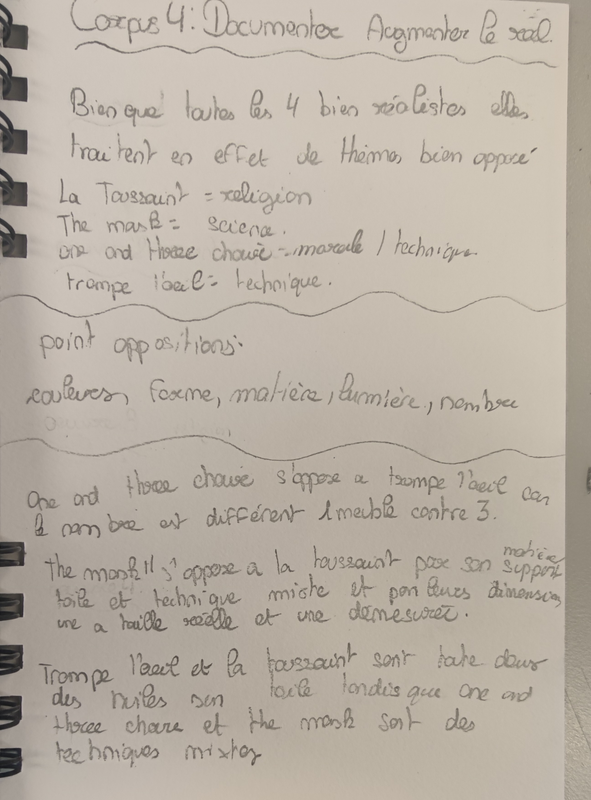 Corpus 4: Documenter Augmenter le réel.
Bien que toutes les 4 bien réalistes elles
traitent en effet de thèmes bien opposé
La Toussaint = religion
The mask = science.
one and three chause = morale / technique.
trompe l'œil = technique.
point oppositions:
couleurs, forme, matière, lumière, nombre
One and three chause s'oppose a trompe l'œil car
le nombre est différent 1 meuble contre 3.
the mask II s'oppose a la toussaint par son matière support
toile et technique mixte et par leurs dimensions
une a taille réelle et une démesurée.
Trompe l'œil et la toussaint sont toute deux
des huiles sur toile tandis que one and
three chaire et the mask sont des
techniques mixtes